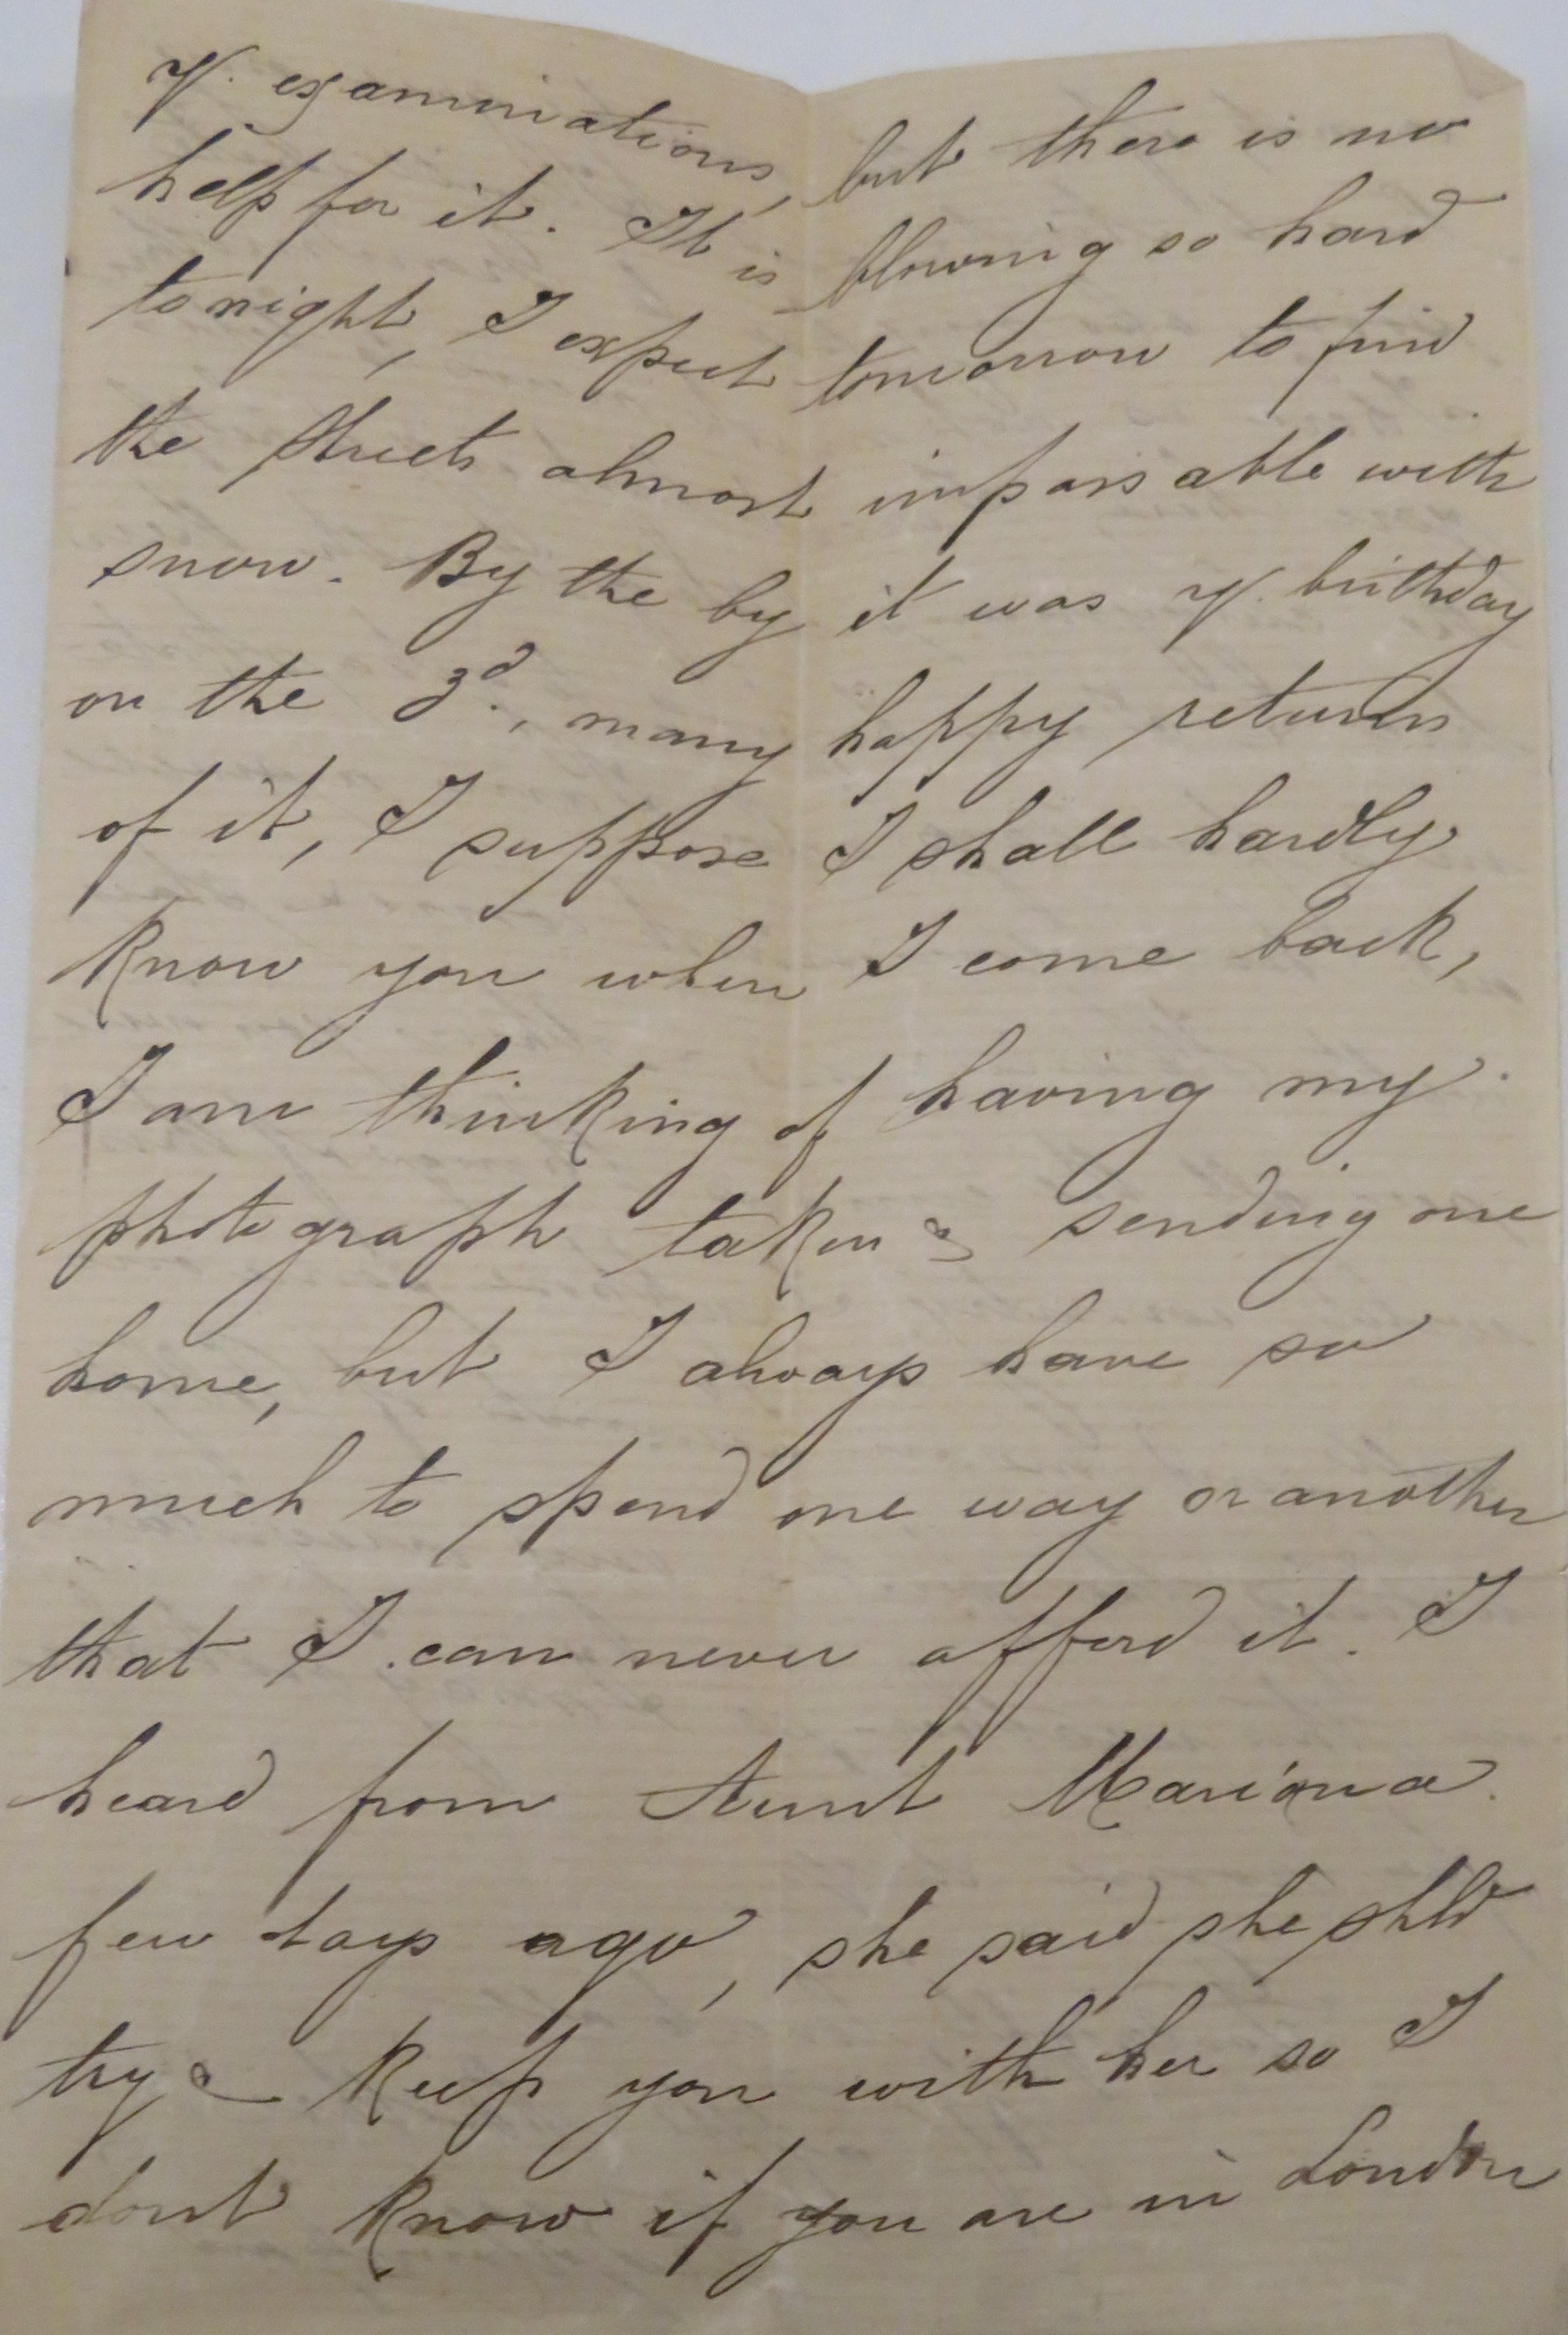 yr. examinations, but there is no
help for it. It is blowing so hard
tonight, I expect tomorrow to find
the streets almost impassable with
snow. By the by it was yr. birthday
on the 3d., many happy returns
of it, I suppose I shall hardly
know you when I come back,
I am thinking of having my
photograph taken & sending one
home, but I always have so
much to spend one way or another
that I can never afford it. I
heard from Aunt Marion a
few days ago, she said she shld
try & keep you with her so I
dont know if you are in London